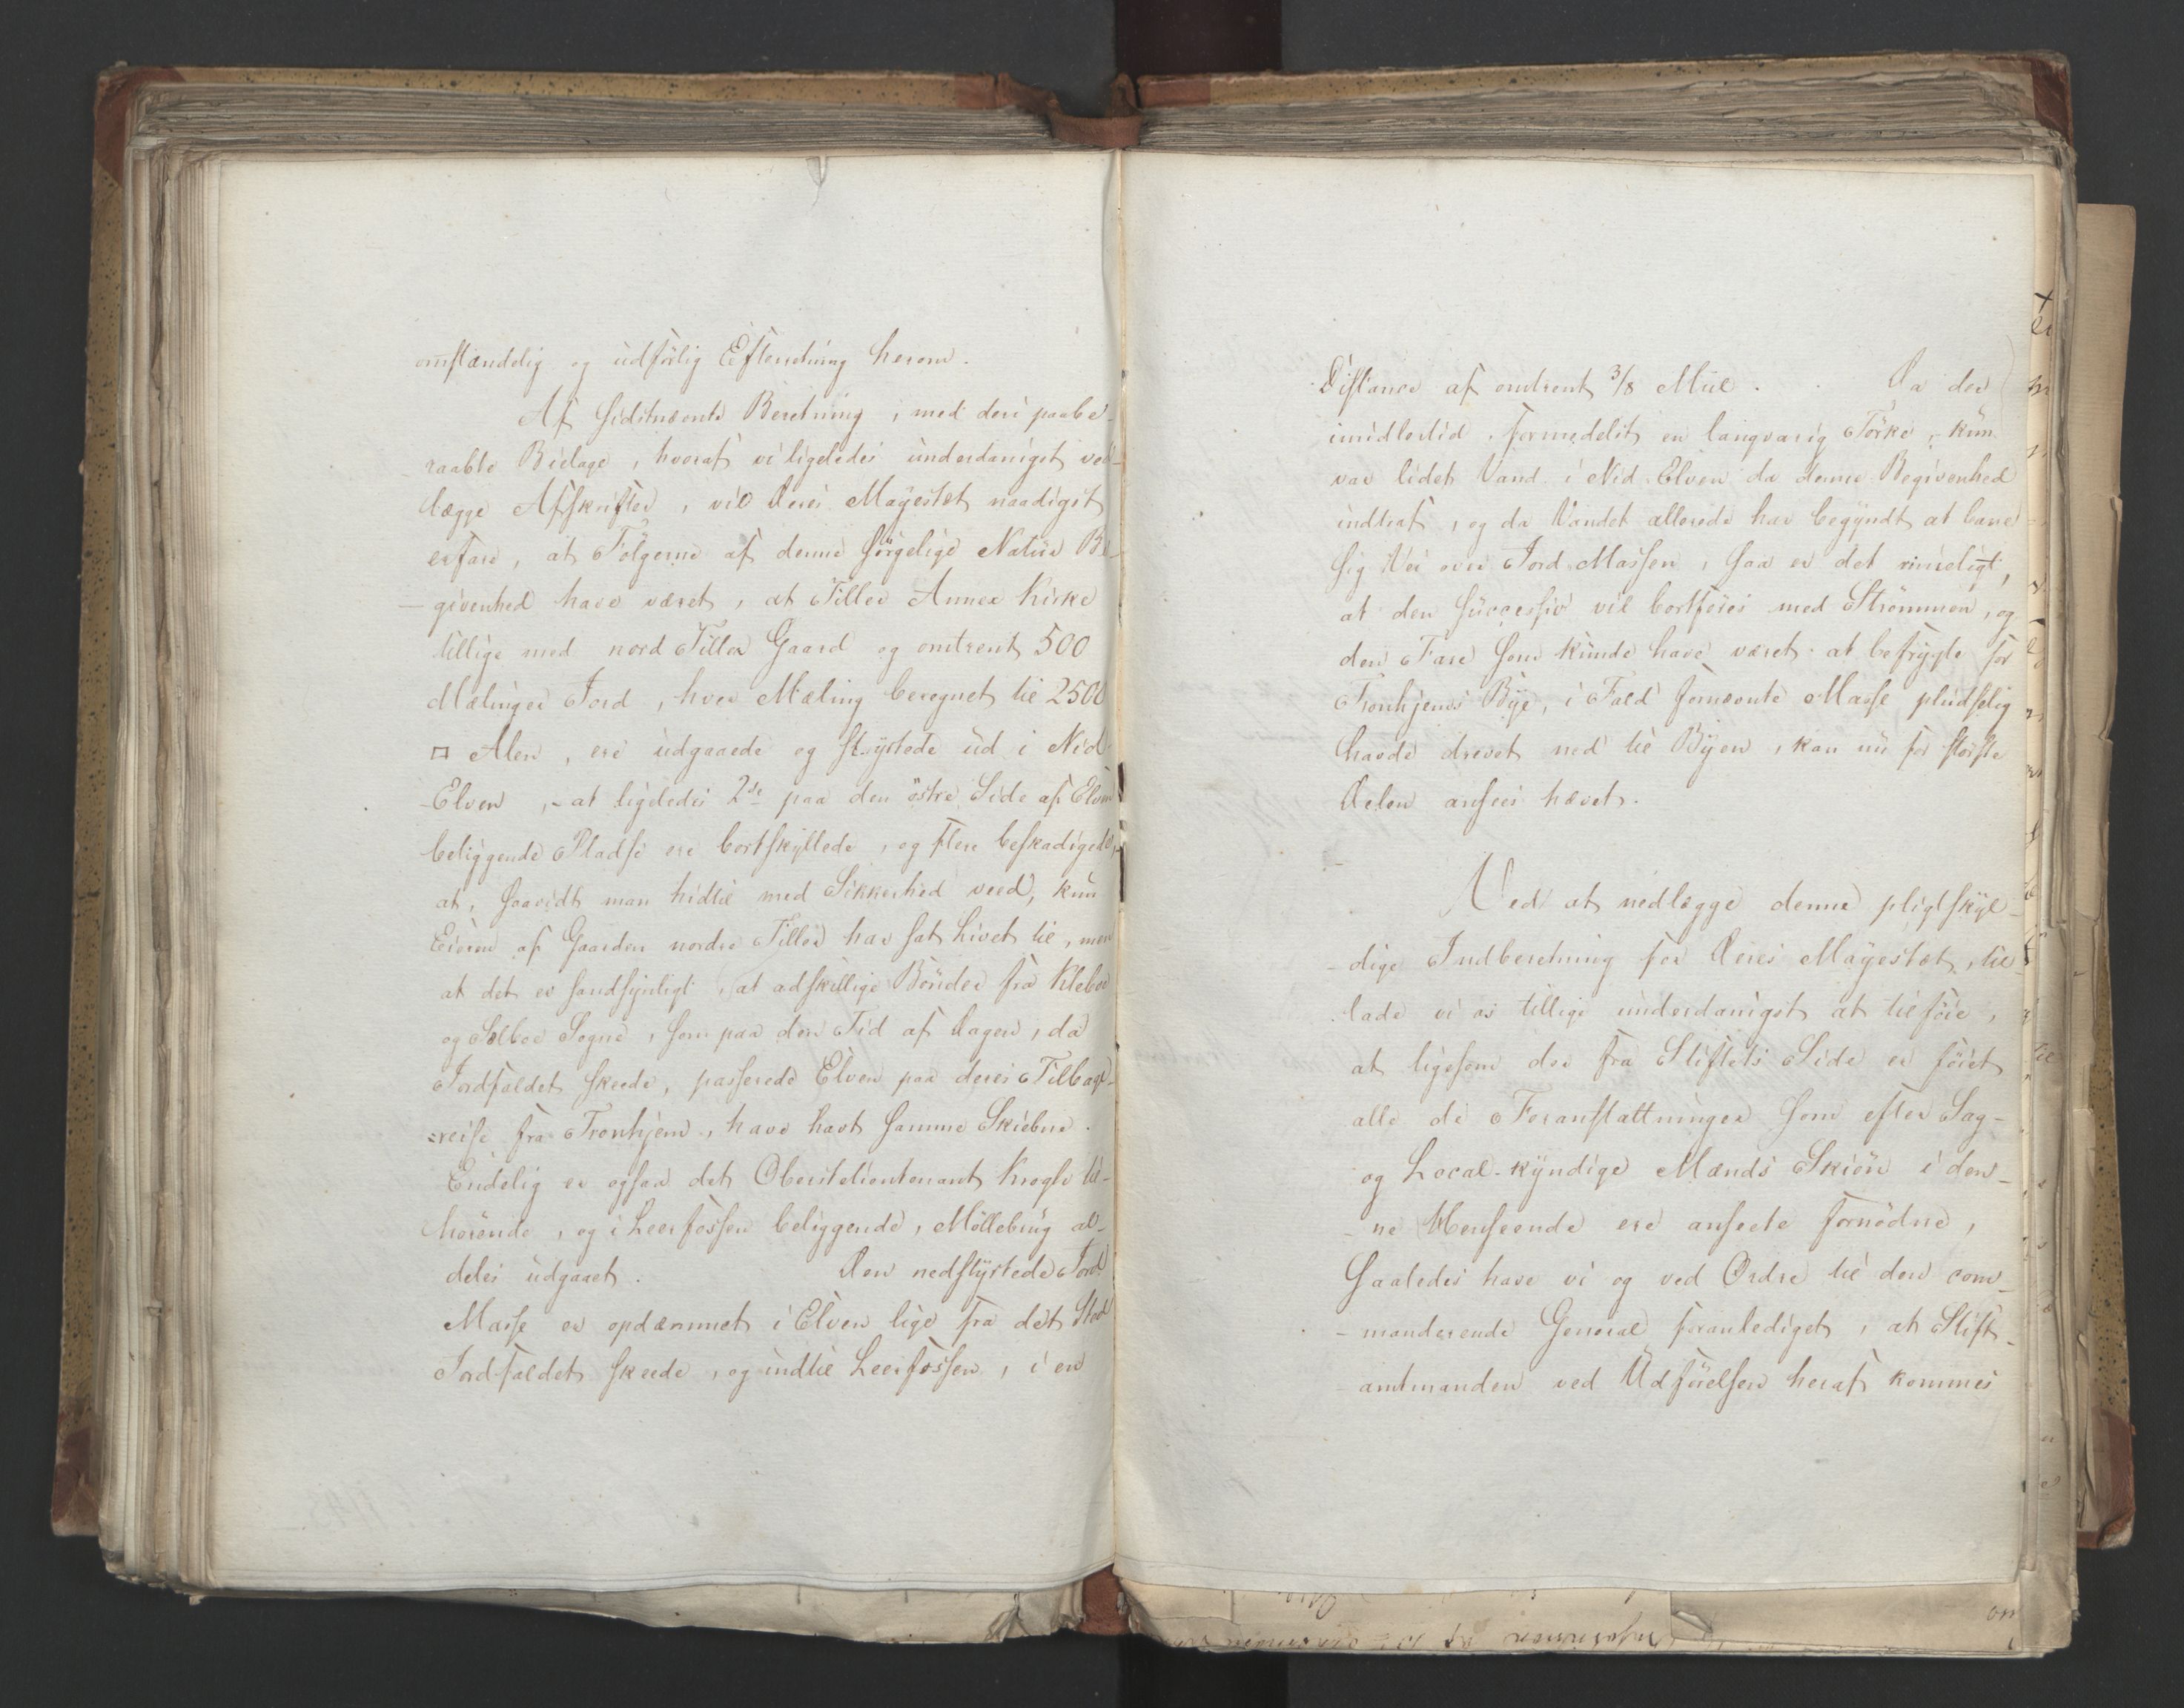 omstændelig og udførlig Efterretning herom.
Af sidstnævnte Beretning, med deri paabe-
raabte Bielage, hvoraf vi ligeledes underdanigst ved-
lægge Afskrifter, vil Deres Mayestet naadigst
erfare, at Følgerne af denne sørgelige Natur Be-
givenhed have været, at Tiller Annex Kirke
tillige med nord Tiller Gaard og omtrent 500
Mælinger Jord, hver Mæling beregnet til 2500
□ Alen, ere udgaaede og styrtede ud i Nid-
Elven, - at ligeledes 2de paa den østre Side af Elven
beliggende Pladse ere bortskyllede, og flere beskadigede,
at, saavidt man hidtil med Sikkerhed veed, kun
Eieren af Gaarden nordre Tiller har sat Livet til, men
at det er sandsynligt, at adskillige Bønder fra Kleboe
og Selboe Sogne, som paa den Tid af Dagen, da
Jordfaldet skeede, passerede Elven paa deres Tilbage-
=reise fra Tronhjem, have havt samme Skiebne.
Endelig er ogsaa det Oberstelieutenant Krogh til-
hørende, og i Leerfossen beliggende, Møllebrug al-
deles udgaaet. Den nedstyrtede Jord
Masse er opdæmmet i Elven lige fra det Sted
Jordfaldet skeede, og indtil Leerfossen, i en
Distance af omtrent 3/8 Miil. Da der
imidlertid, formedelst en langvarig Tørke, kun
var lidet Vand i Nid-Elven da denne Begivenhed
indtraf, og da Vandet allerede har begyndt at bane
sig Vei over Jord-Massen, saa er det rimeligt,
at den successiv vil bortføres med Strømmen, og
den Fare som kunde have været at befrygte for
Tronhjems Bye, i Fald fornævnte Masse pludselig
havde drevet ned til Byen, kan nu for største
Delen ansees hævet.
Ved at nedlægge denne pligtskyl-
-dige Indberetning for Deres Mayestæt, til-
lade vi os tillige underdanigst at tilføie,
at ligesom der fra Stiftets Side er føiet
alle de Foranstaltninger som efter Sag-
og Local-kyndige Mænds Skiøn i den-
-ne Henseende ere ansete fornødne,
saaledes have vi og ved Ordre til den com-
-manderende General foranlediget, at Stift-
amtmanden ved Udførelsen heraf kommes